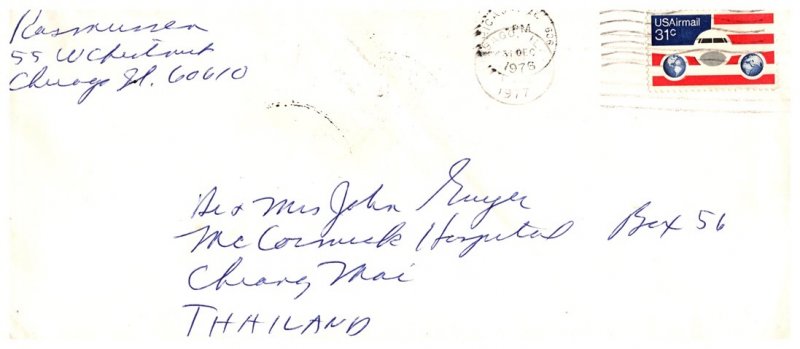 Rasmussen
55 W Chestnut
Chicago Il. 60610
CHICAGO, IL 606
PM
31 DEC
1976
1977
USAirmail
31c
Dr + Mrs John Guyer
McCormick Hospital Box 56
Chiang Mai
THAILAND